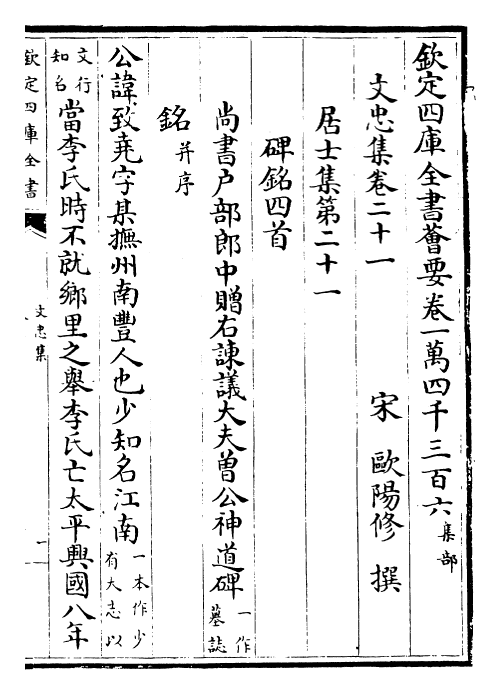 欽定四庫全書薈要卷一萬四千三百六集部
文忠集卷二十一 宋 歐陽修 撰
居士集第二十一
碑銘四首
尚書户部郎中贈右諫議大夫曽公神道碑一作墓誌
銘并序
公諱致堯字某撫州南豐人也少知名江南一本作少有大志以
文行知名當李氏時不就鄉里之舉李氏亡太平興國八年
欽定四庫全書
文忠集
一